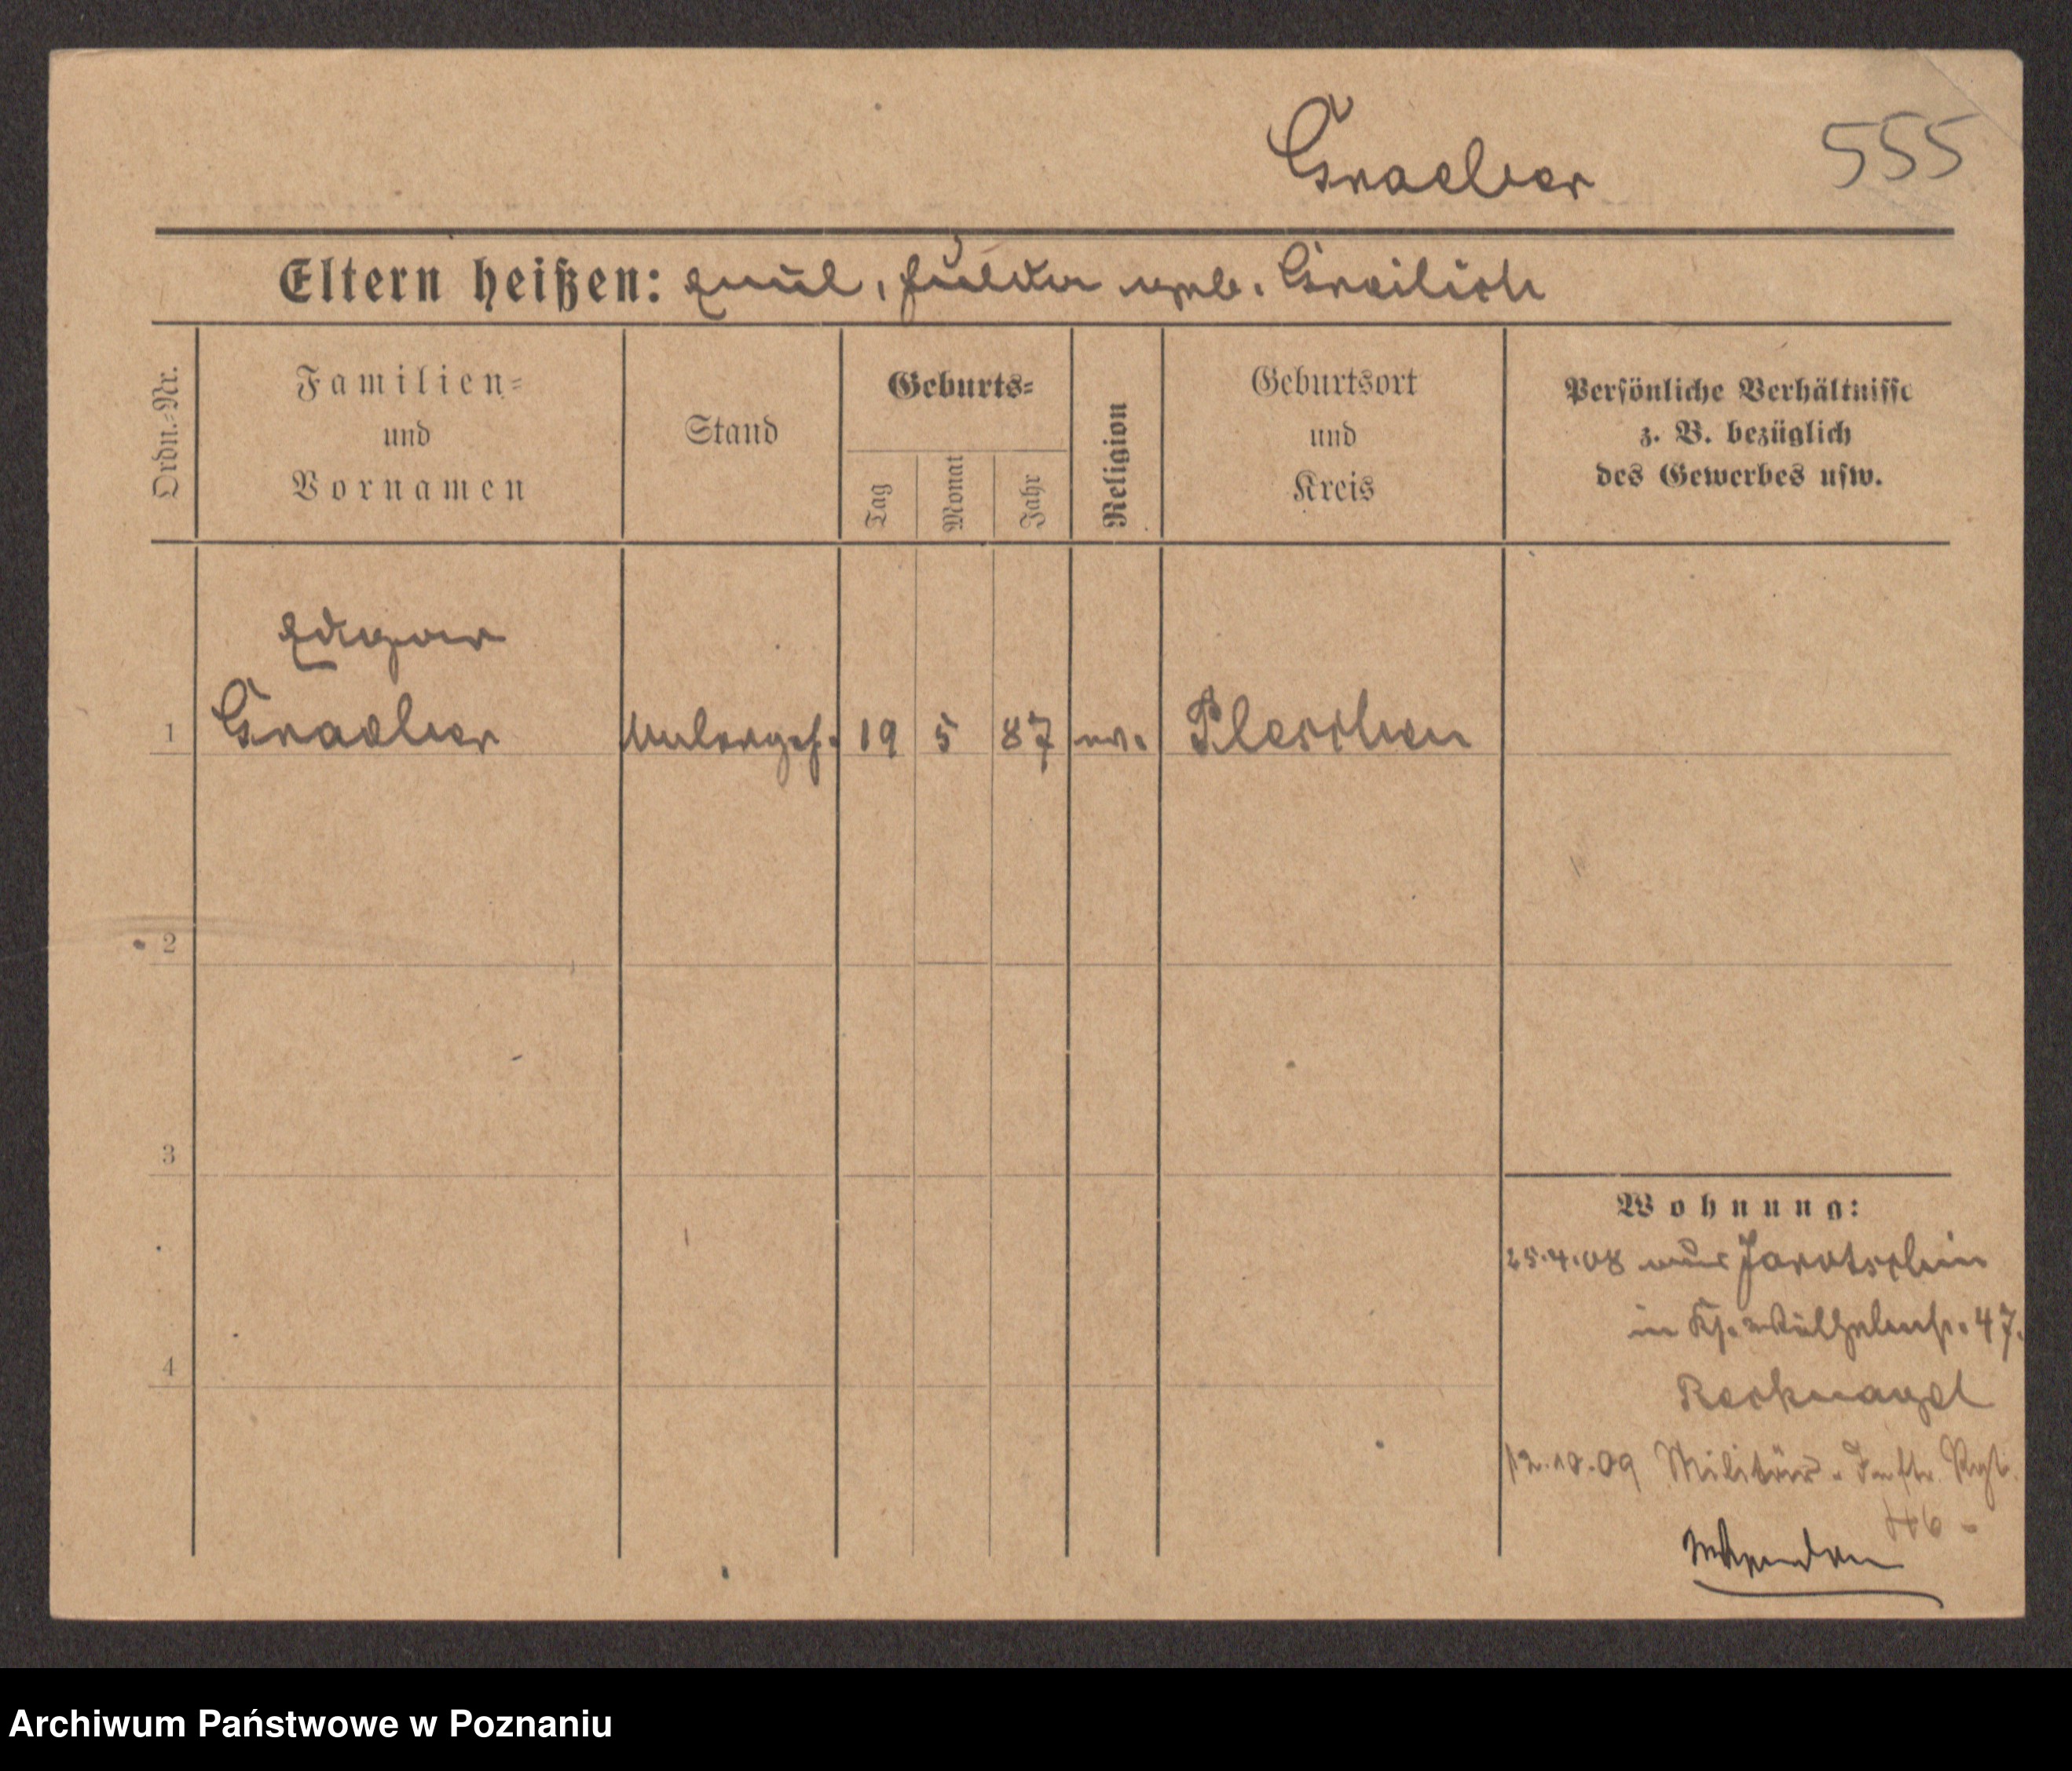 Graeber
555
Eltern heißen: Paul, Hulda geb. Greilich
Ordn.=Nr.
Familien=
und
Vornamen
Stand
Geburts=
Tag
Monat
Jahr
Religion
Geburtsort
und
Kreis
Persönliche Verhältnisse
z. B. bezüglich
des Gewerbes usw.
Edgar
1 Graeber Malergeh. 19 5 87 ev. Pleschen
2
3
4
Wohnung:
25.4.08 aus Jarotschin
in Kais. Wilhelmstr. 47.
Recknagel
12.10.09 Militär. Inftr. Rgt.
46
Archiwum Państwowe w Poznaniu